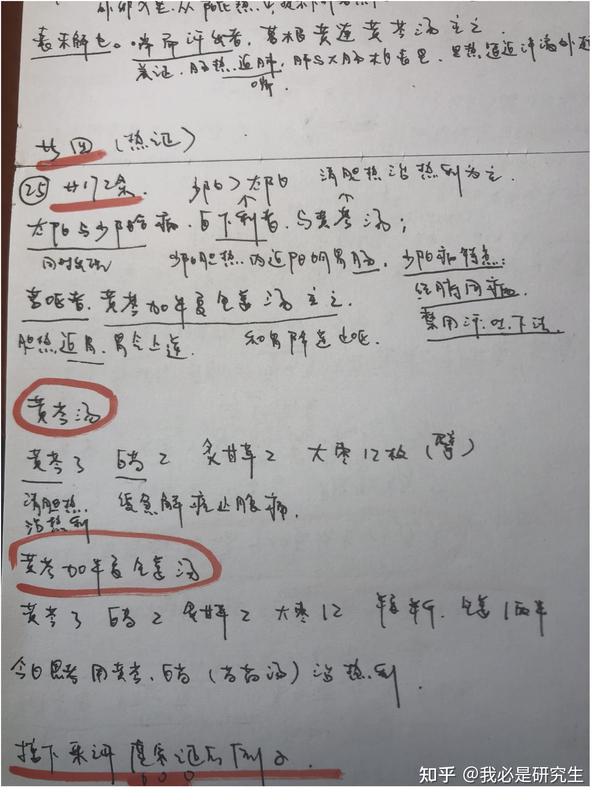 表未解也。喘而汗出者,葛根黄连黄芩汤主之
廿四(热证)
㉕ 廿172条. 少阳>太阳 清胆热治热利为主
太阳与少阳合病,自下利者,与黄芩汤;
同时发病 少阳胆热内迫阳明胃肠. 少阳病特点:
若呕者,黄芩加半夏生姜汤主之. 经腑同病.
胆热迫胃,胃气上逆. 和胃降逆止呕. 禁用汗.吐.下法.
黄芩汤
黄芩3 白芍2 炙甘草2 大枣12枚(擘)
清胆热. 缓急解痉止腹痛.
治热利
黄芩加半夏生姜汤
黄芩3 白芍2 炙甘草2 大枣12 半夏半斤. 生姜1两半
今日思考用黄芩.白芍(芍药汤)治热利.
接下来讲虚寒证的下利
知乎 @我必是研究生